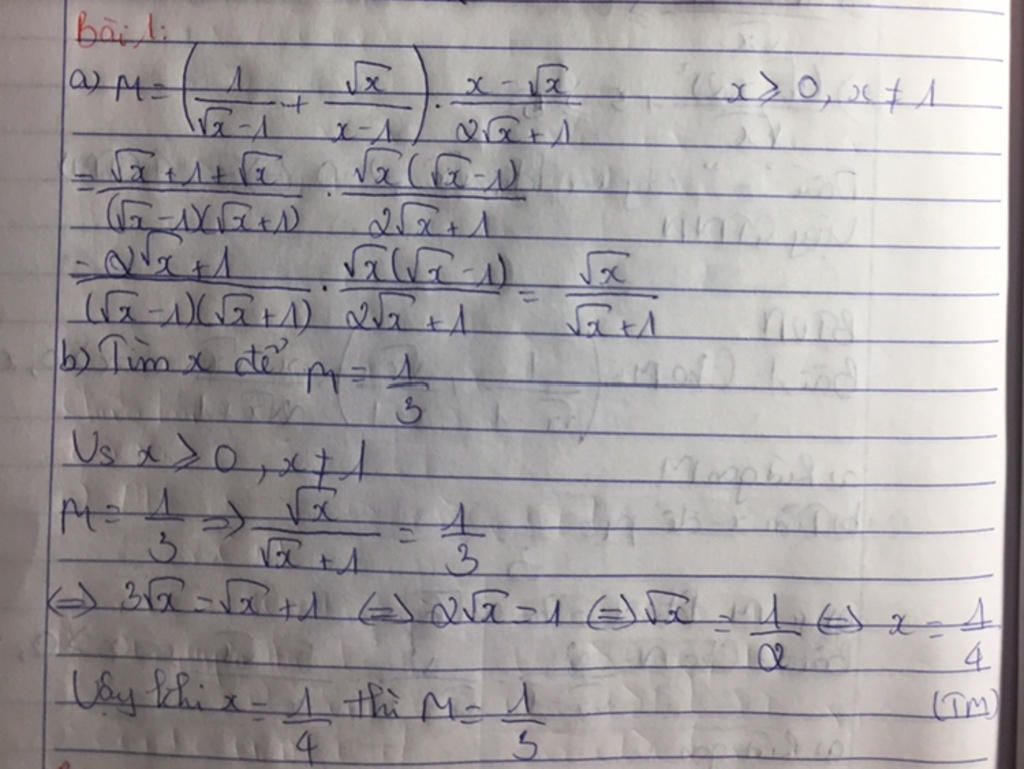 Bài 1:
a) M = (1/(√x-1) + √x/(x-1)) . (x-√x)/(2√x+1) x ⩾ 0, x ≠ 1
= (√x+1+√x)/((√x-1)(√x+1)) . √x(√x-1)/(2√x+1)
= (2√x+1)/((√x-1)(√x+1)) . √x(√x-1)/(2√x+1) = √x/(√x+1)
b) Tìm x để M = 1/3
Vs x ⩾ 0, x ≠ 1
M = 1/3 => √x/(√x+1) = 1/3
<=> 3√x = √x+1 <=> 2√x = 1 <=> √x = 1/2 <=> x = 1/4
(TM)
Vậy khi x = 1/4 thì M = 1/3